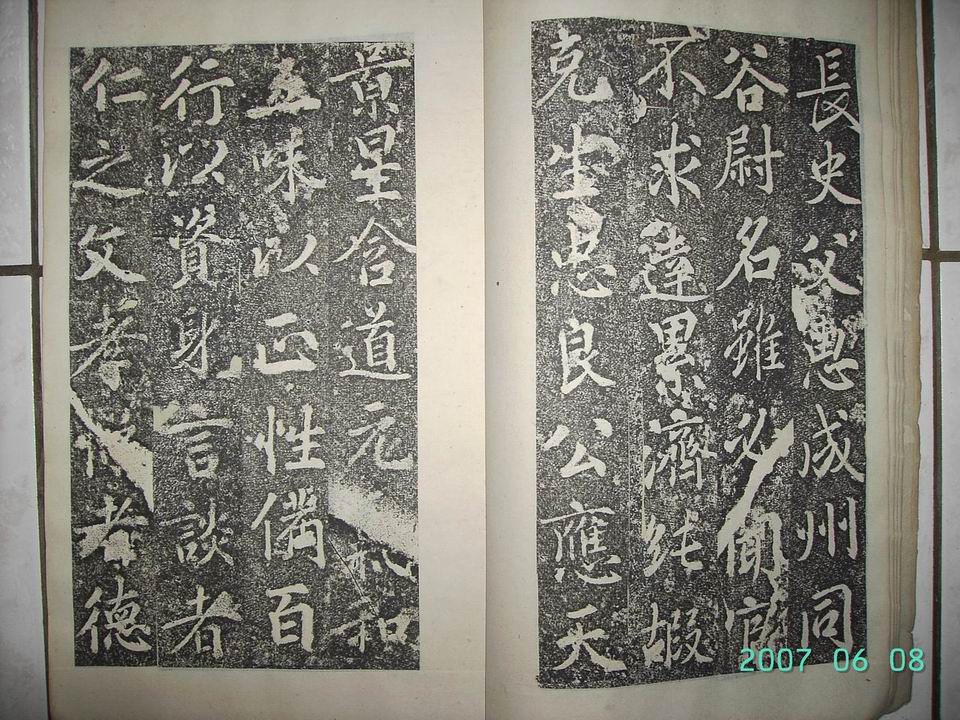 長史父懿成州同
谷尉名雖必聞官
不求達累濟純嘏
克生忠良公應天
景星含道元和
五味以正性備百
行以資身言談者
仁之文孝者德
2007 06 08